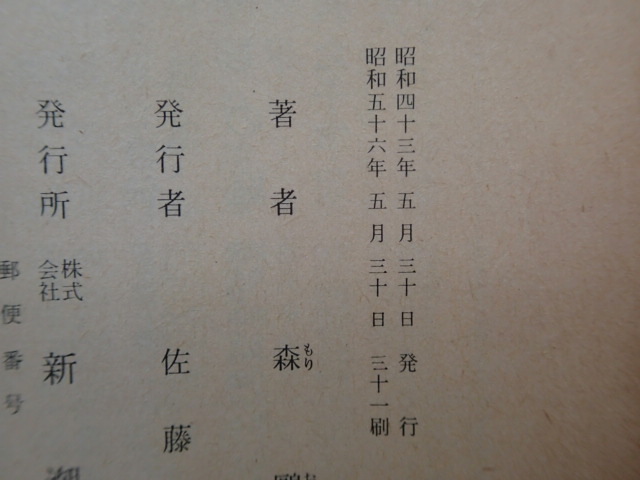 昭和四十三年五月三十日発行
昭和五十六年五月三十日三十一刷
著者 森もり
発行者 佐藤
発行所 株式会社 新
郵便番号